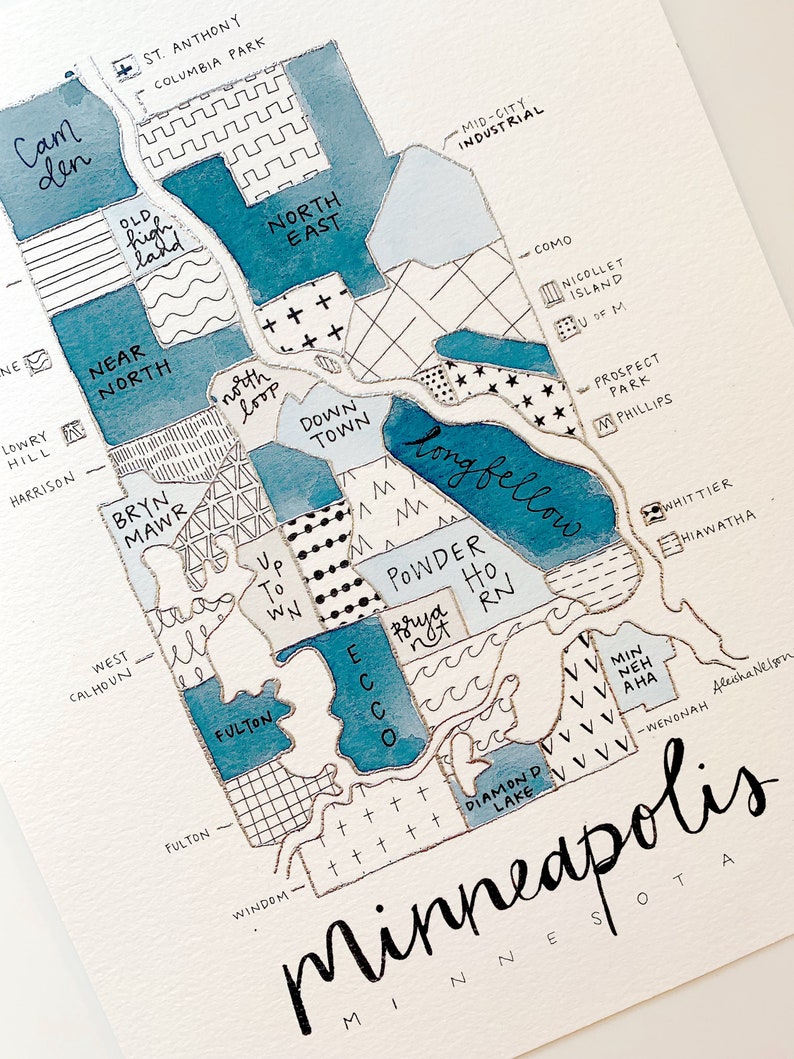 ST. ANTHONY
COLUMBIA PARK
Cam
den
MID-CITY
INDUSTRIAL
OLD
high
land
NORTH
EAST
COMO
NICOLLET
ISLAND
U OF M
NE
NEAR
NORTH
north
loop
DOWN
TOWN
PROSPECT
PARK
PHILLIPS
LOWRY
HILL
HARRISON
longfellow
BRYN
MAWR
WHITTIER
HIAWATHA
UPTOWN
POWDER
HO
RN
Brya
nt
WEST
CALHOUN
ECCO
MIN
NEH
AHA
AleishaNelson
FULTON
WENONAH
DIAMOND
LAKE
FULTON
WINDOM
minneapolis
MINNESOTA